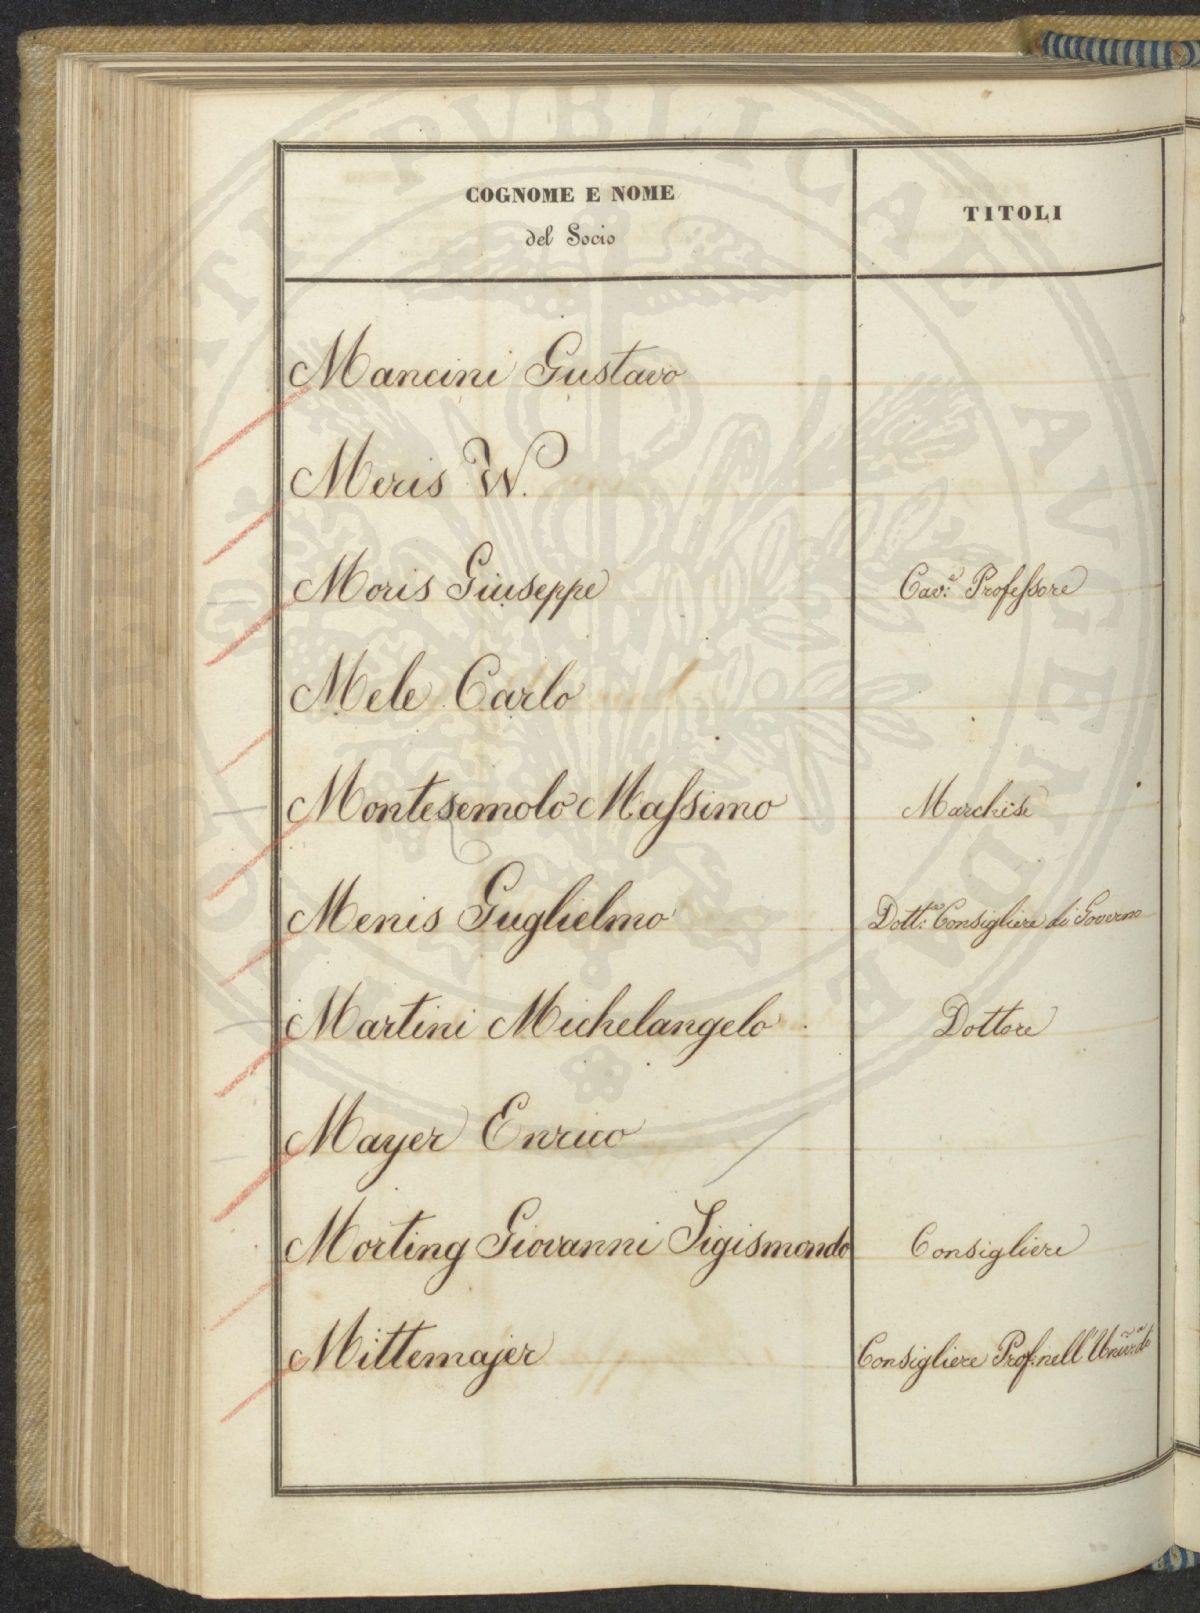 COGNOME E NOME
del Socio
TITOLI
Mancini Gustavo
Meris W.
Moris Giuseppe Cav.e Professore
Mele Carlo
Montesemolo Massimo Marchese
Menis Guglielmo Dott.re Consigliere di Governo
Martini Michelangelo Dottore
Mayer Enrico
Morting Giovanni Sigismondo Consigliere
Mittemajer Consigliere Prof. nell'
PUBLICAE AUGENDAE